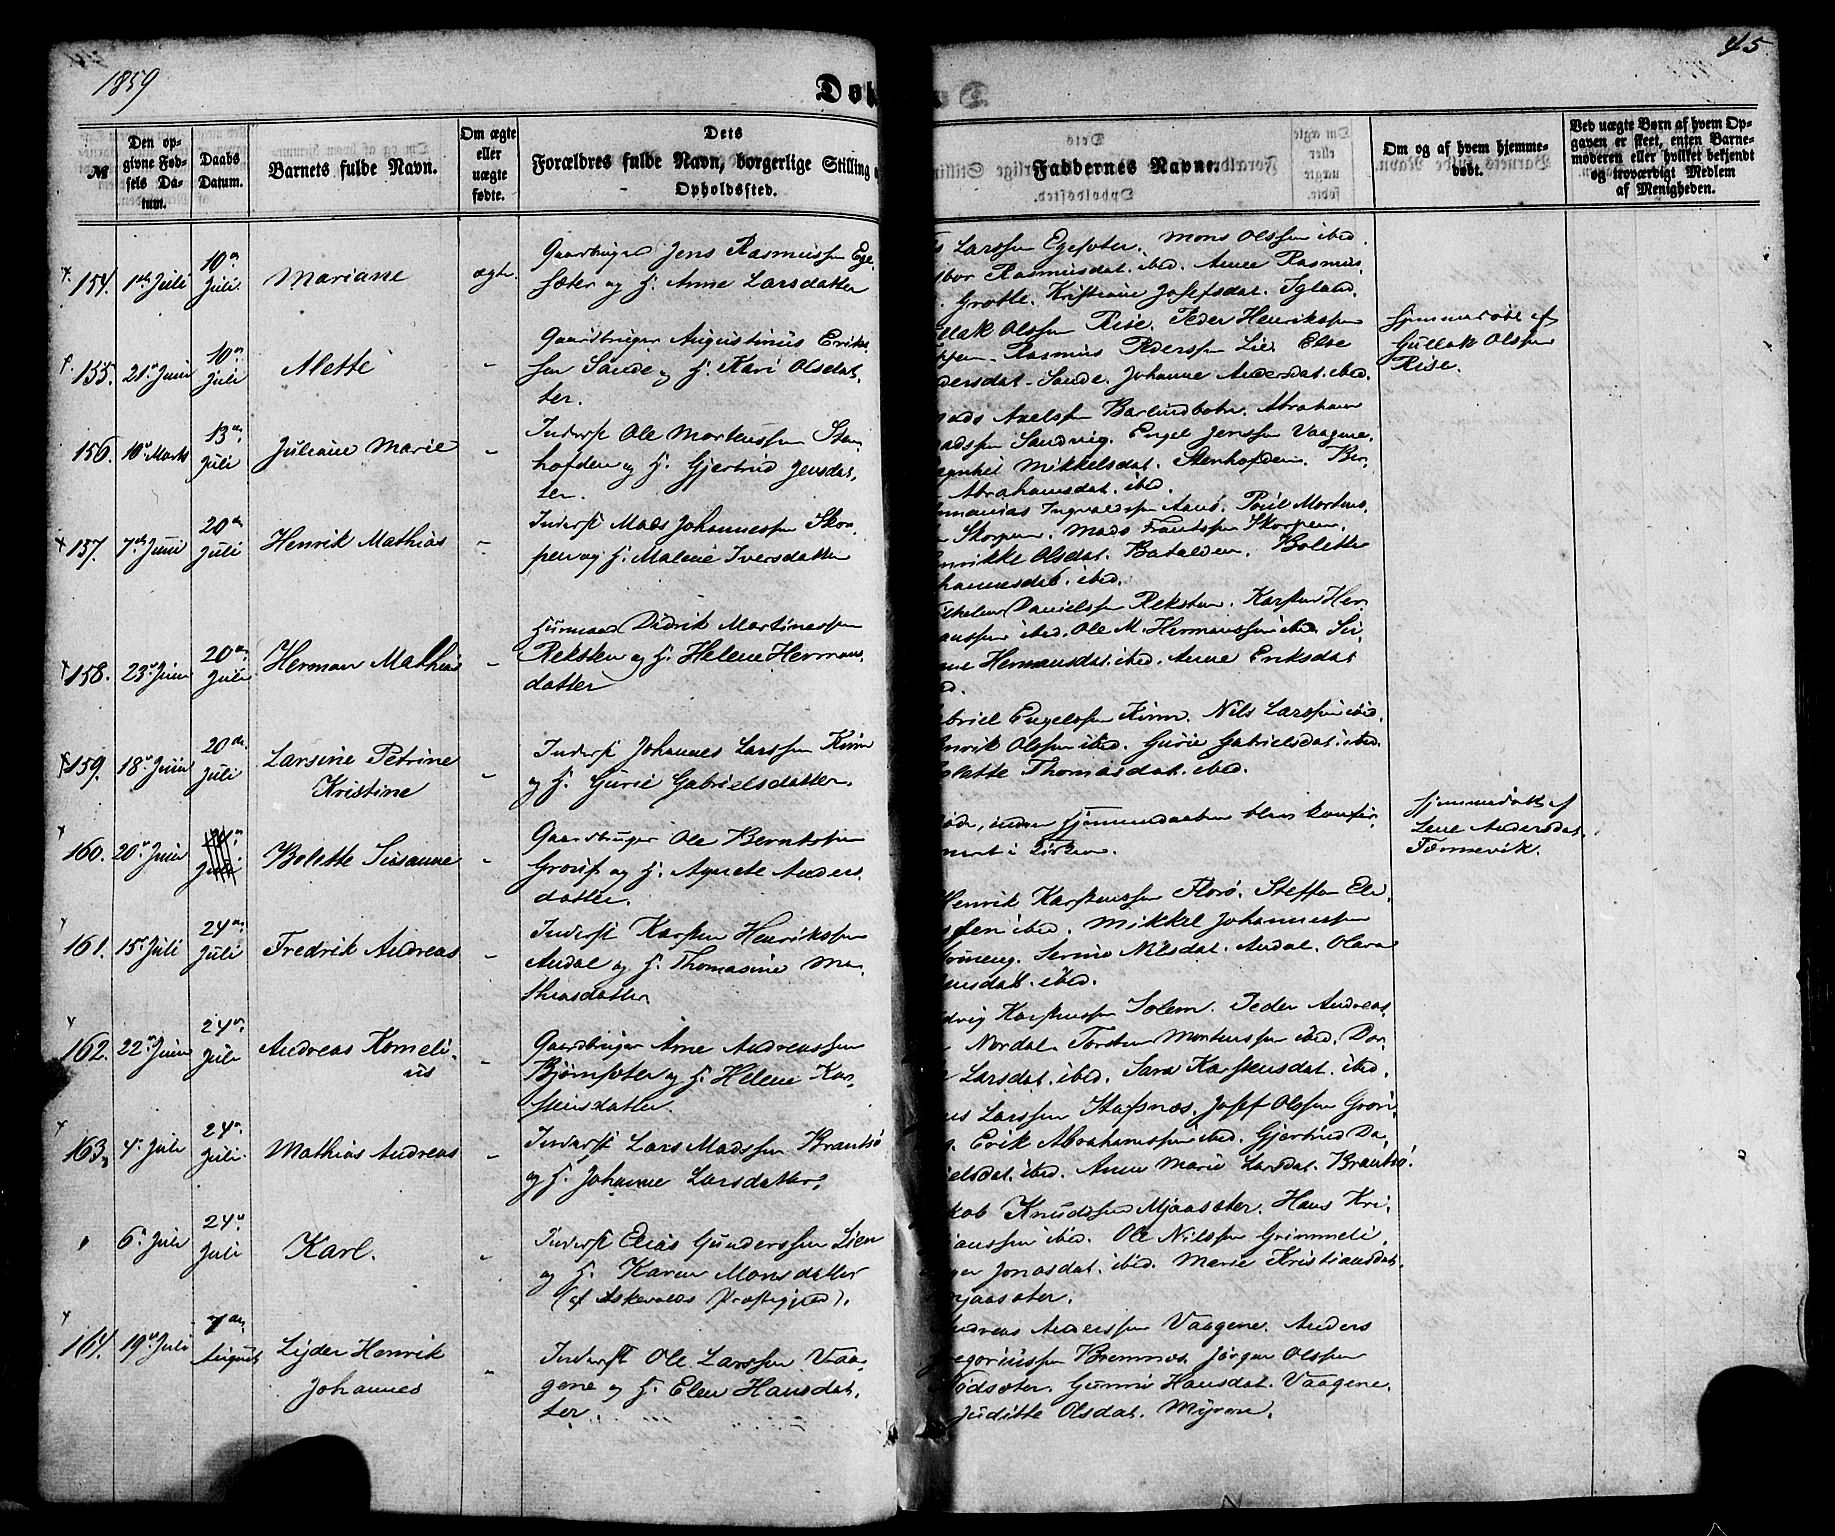 1859
45
Døb
№
Den op-
givne Fød-
sels Da-
tum.
Daabs
Datum.
Barnets fulde Navn.
Om ægte
eller
uægte
fødte.
Dets
Forældres fulde Navn, borgerlige Stilling o
Opholdssted.
Faddernes Navne.
Om og af hvem hjemme-
døbt.
Ved uægte Børn af hvem Op-
gaven er skeet, enten Barne-
moderen eller hvilket bekjendt
og troværdigt Medlem
af Menigheden.
154. 1ste Juli
10de
Juli.
Mariane
ægte
Gaardbruger Jens Rasmussen Ege-
sæter og H. Anne Larsdatter
Larssen Egesæter. Mons Olssen ibed.
Rasmusdat. ibed. Anne Rasmus-
Grotle. Kristiane Josefsdat. Igland.
155. 21de Juni
10de
Juli
Mette
-
Gaardbruger Augustinus Eriks-
sen Sande og H. Kari Olsdat-
ter.
Olssen Rise. Peder Henrikssen
Rasmus Pederssen Lie. Else
dersdat. Sande. Johanne Andersdat. ibed.
Hjemmedøbt af
Gullak Olssen
Rise.
156. 10de Marts
13de
Juli
Juliane Marie
-
Inderst Ole Mortenssen Sten-
hofden og H. Gjertrud Jensdat-
ter.
Axelssen Barlindbotn. Abraham
adssen Sandvig. Engel Jenssen Vaagene.
Mikkelsdat. Stenhofden. Ber-
Abrahamsdat. ibed.
157. 7de Juni
20de
Juli
Henrik Mathias
-
Inderst Mads Johannessen Skor-
pen og H. Malene Iversdatter
Ingvaldssen Aanø. Poul Mortens-
Skorpen. Mads Frantssen Skorpen.
Olsdat. Batalden. Bolette
hannesdat. ibed.
158. 23de Juni
20de
Juli
Herman Mathias
-
Huusmand Didrik Martinessen
Reksten og H. Helene Hermans-
datter
Danielssen Reksten. Karsten Her-
manssen ibed. Ole M. Hermanssen ibed. Si-
Hermansdat. ibed. Anne Eriksdat
159. 18de Juni
20de
Juli
Larsine Petrine
Kristine
-
Inderst Johannes Larssen Kinn
og H. Gurie Gabrielsdatter.
briel Engelssen Kinn. Nils Larssen ibid.
Olssen ibed. Gurie Gabrielsdat. ibed.
Thomasdat. ibed.
160. 20de Juni
Juli
Bolette Susanne
-
Gaardbruger Ole Berntssen
Grov og H. Agnete Anders-
datter.
inden Hjemmedaaben blev konfir-
meret i Kirken.
Hjemmedøbt af
Lene Andersdat.
Tonnevik.
161. 15de Juli
24de
Juli
Fredrik Andreas
-
Inderst Karsten Henrikssen
Andal og H. Thomasine Ma-
thiasdatter
Henrik Karstenssen Florø. Steffen El-
ibed. Mikkel Johannessen
Serine Nilsdat. Andal. Olava
ibed.
162. 22de Juni
24de
Juli
Andreas Korneli-
us
-
Gaardbruger Arne Andreassen
Bjørnsæter og H. Helene Kar-
stensdatter.
Karstenssen Solem. Peder Andreas-
Nordal. Torsten Mortenssen ibed. Dor-
Larsdat. ibed. Sara Karstensdat. ibed.
163. 4de Juli
24de
Juli.
Mathias Andreas
-
Inderst Lars Madssen Brantsø
og H. Johanne Larsdatter.
Larssen Stafsnæs. Josef Olssen Grov-
Erik Abrahamssen ibed. Gjertrud Da-
ielsdat. ibed. Anne Marie Larsdat. Brantsø.
6de Juli
24de
Juli
Karl.
-
Inderst Elias Gunderssen Lien
og H. Karen Monsdatter
(af Askevolds Præstegjeld).
Knudssen Mjaasæter. Hans Kri-
ianssen ibed. Ole Nilssen Grimmeli.
Jonasdat. ibed. Marie Kristiansdat.
jaasæter.
164. 19de Juli
7de
August
Lyder Henrik
Johannes
-
Inderst Ole Larssen Vaa-
gene og H. Elen Hansdat-
ter.
Andreas Anderssen Vaagene. Anders
egoriussen Bremnæs. Jørgen Olssen
ødsæter. Gunni Hansdat. Vaagene.
Juditte Olsdat. Myren.